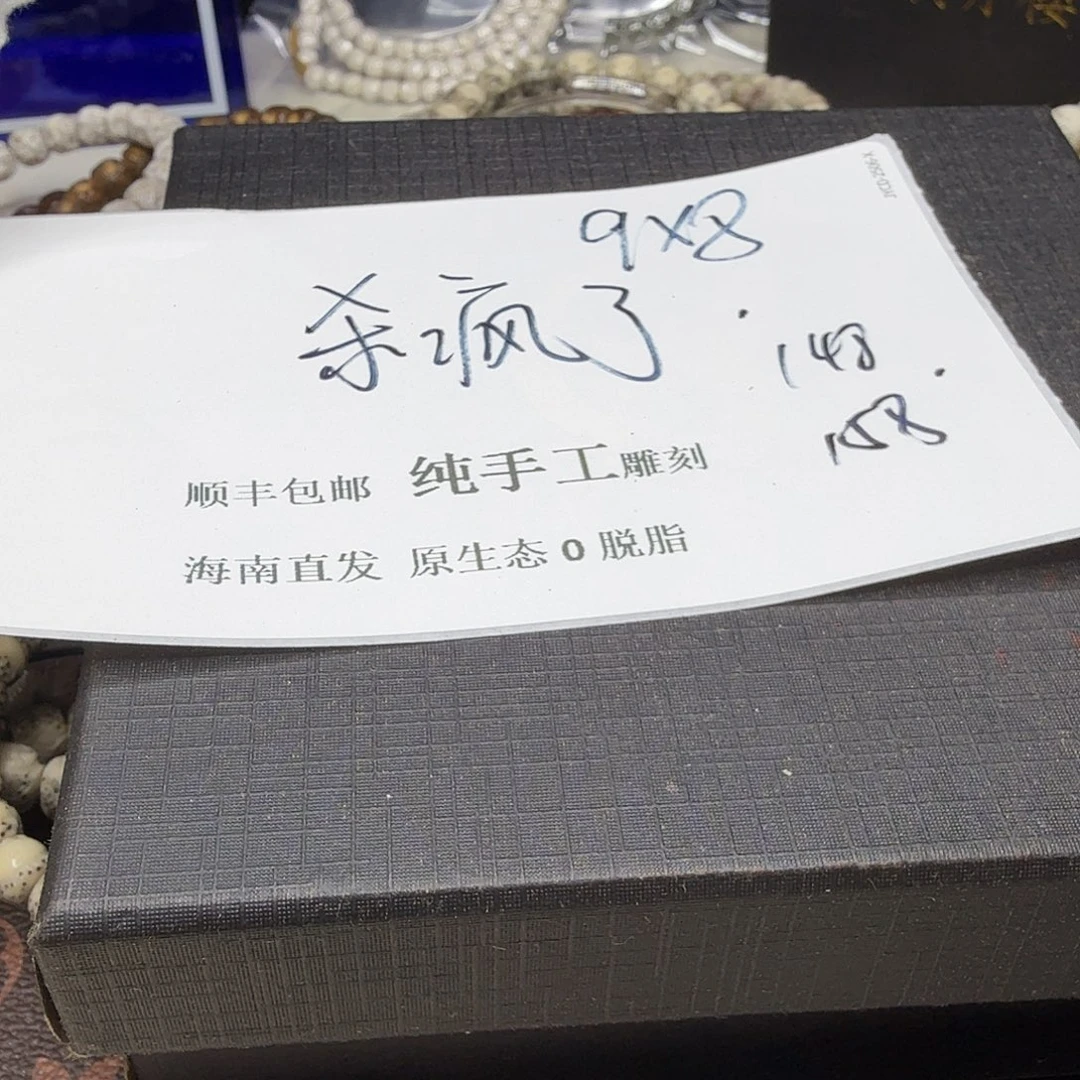 9x8
杀疯了
148
158
顺丰包邮 纯手工雕刻
海南直发 原生态0脱脂